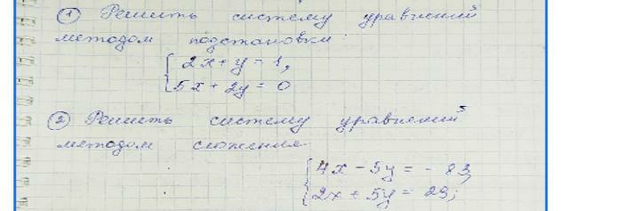 ① Решить систему уравнений
методом подстановки
2x + y = 1,
5x + 2y = 0
② Решить систему уравнений
методом сложения
4x - 5y = - 83,
2x + 5y = 29;